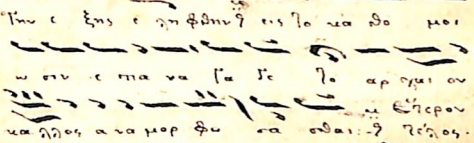 Γην ε ξης ε λη φθην ϗ εις το κα θο μοι
ω σιν ε πα να γα γε το αρ χαι ον
ϗ ἕτερον
κα λλος α να μορ φω σα σθαι: ϗ τέλος.